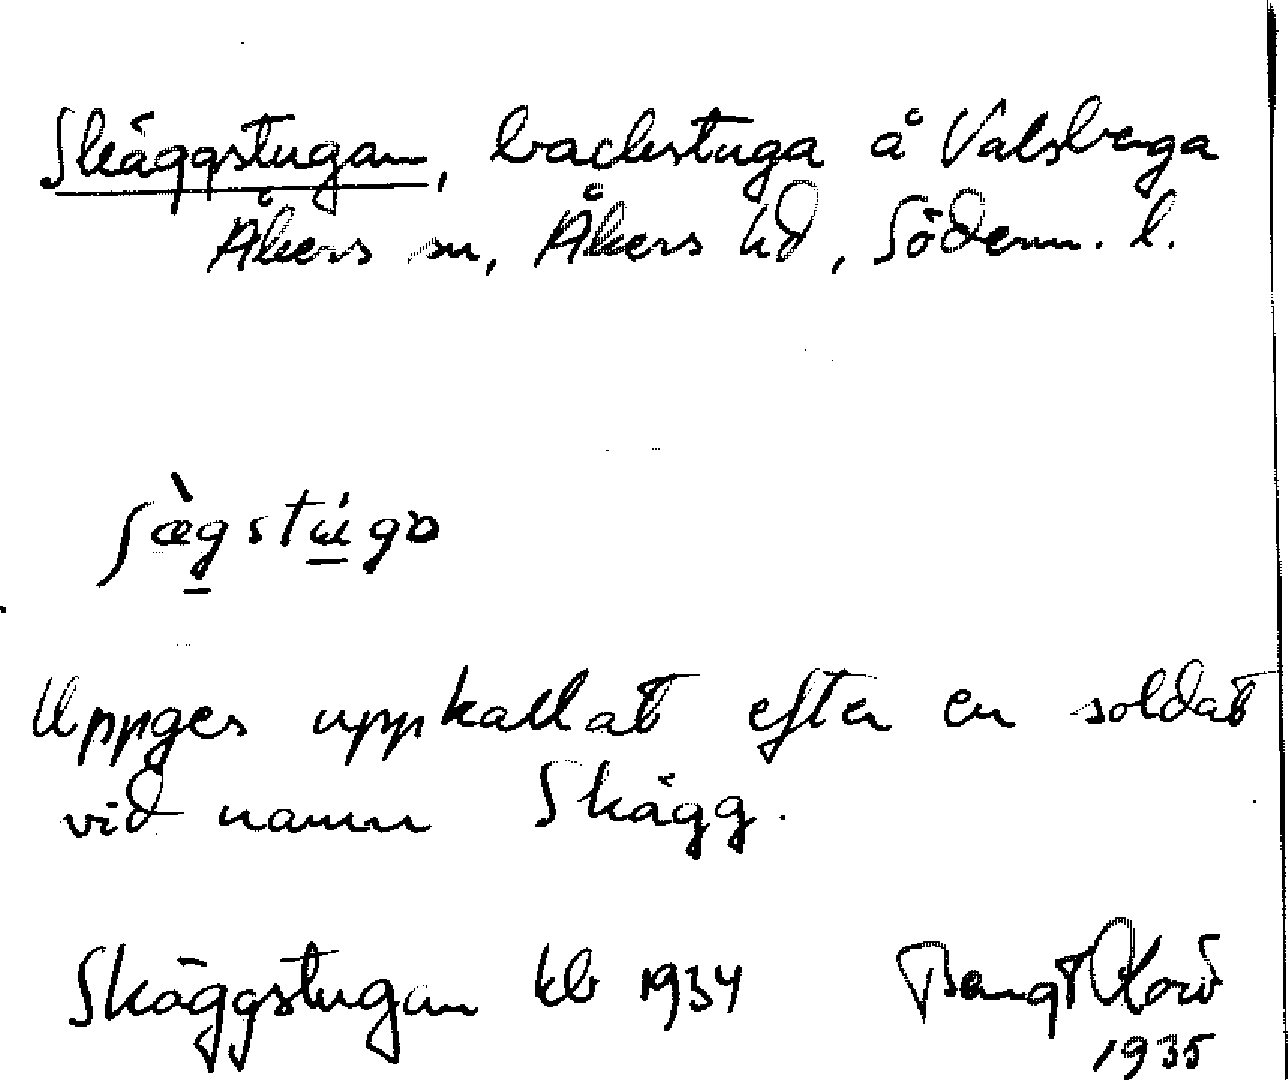 Skäggstugan, backstuga å Valsberga
Åkers sn, Åkers hd, Söderm. l.
ʃæ̀gstúgɒ
Uppges uppkallat efter en soldat
vid namn Skägg.
Skäggstugan kb 1934 Bengt
1935